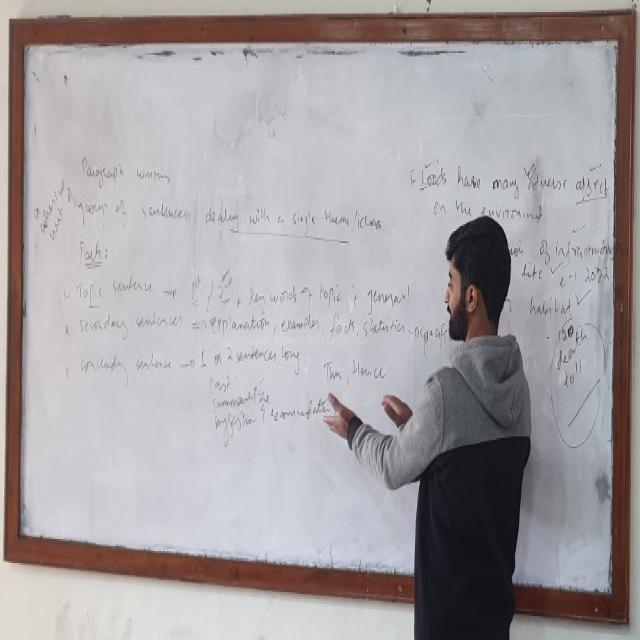 Paragraph writing
group of sentences dealing with a single theme/idea
Parts:
Topic sentence → 1st / 2nd + key words of topic + general
secondary sentences => explanation, examples, facts, statistics
concluding sentence → 1 or 2 sentences long
Thus, Hence
summarize
suggestion &
Floods have many adverse effects
on the environment
of infrastructure
habitat
death
toll